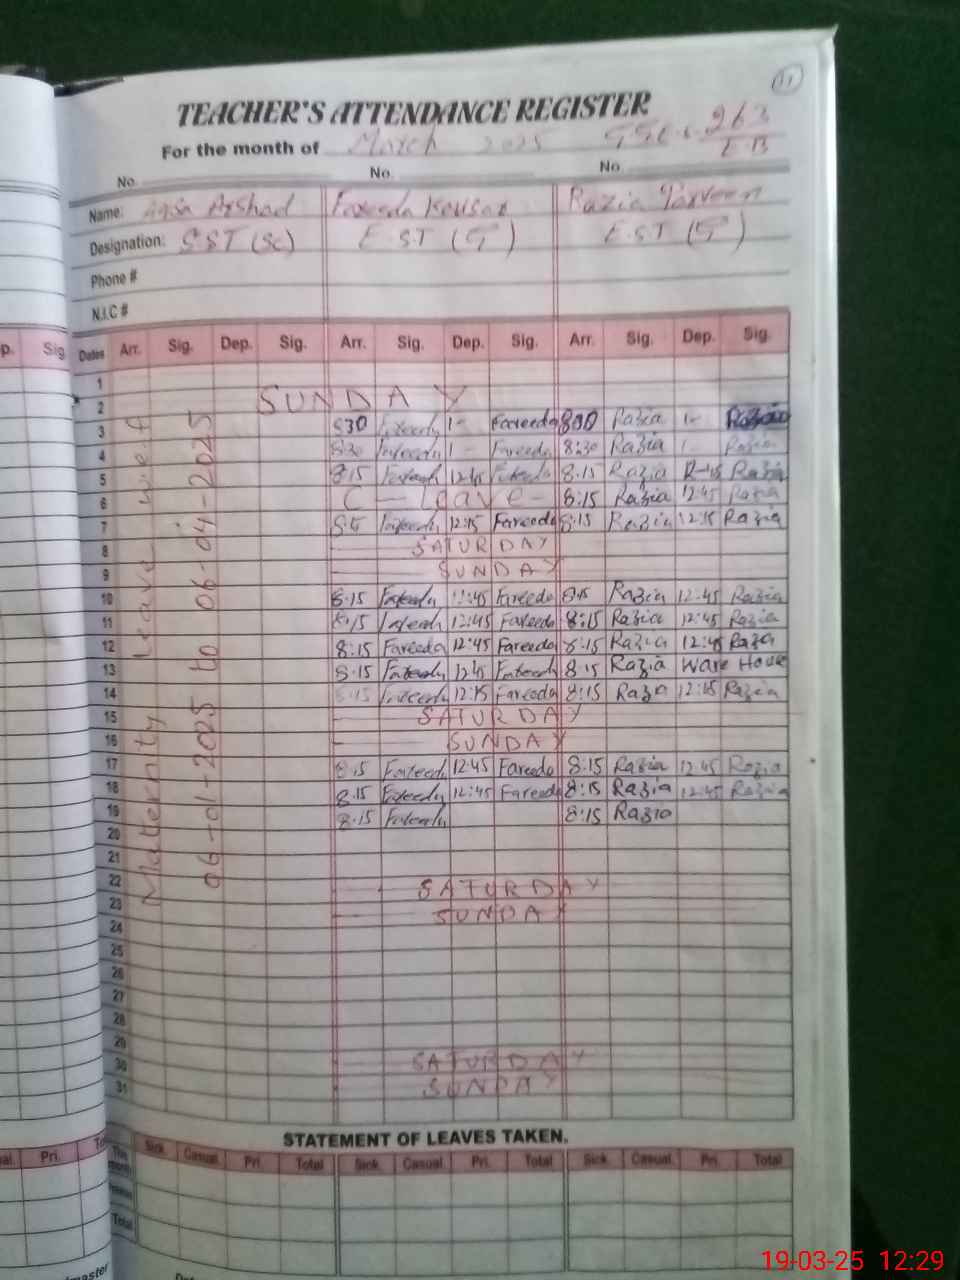 11
TEACHER'S ATTENDANCE REGISTER
For the month of March 2025 263
E-B
No. No. No.
Name: Aqsa Arshad Fareeda Kousar Razia Parveen
Designation: SST (Sc) E.S.T (G) E.S.T (G)
Phone #
N.I.C #
p. Sig. Dates Arr. Sig. Dep. Sig. Arr. Sig. Dep. Sig. Arr. Sig. Dep. Sig.
Maternity Leave w.e.f
06-01-2025 to 06-04-2025
1
2 SUNDAY
3 830 Fareeda 1- Fareeda 830 Razia 1- Razia
4 830 Fareeda 1- Fareeda 8:30 Razia 1- Razia
5 8.15 Fareeda 12:45 Fareeda 8.15 Razia 12-45 Razia
6 C-Leave- 8:15 Razia 12:45 Razia
7 8:15 Fareeda 12:15 Fareeda 8.15 Razia 12:15 Razia
8 SATURDAY
9 SUNDAY
10 8.15 Fareeda 12:45 Fareeda 8:15 Razia 12-45 Razia
11 8.15 Fareeda 12:45 Fareeda 8:15 Razia 12:45 Razia
12 8:15 Fareeda 12:45 Fareeda 8:15 Razia 12:45 Razia
13 8.15 Fareeda 12:45 Fareeda 8:15 Razia Ware House
14 8.15 Fareeda 12:15 Fareeda 8:15 Razia 12:15 Razia
15 SATURDAY
16 SUNDAY
17 8.15 Fareeda 12:45 Fareeda 8.15 Razia 12:45 Razia
18 8.15 Fareeda 12:45 Fareeda 8:15 Razia 12:45 Razia
19 8.15 Fareeda 8:15 Razia
20
21
22 SATURDAY
23 SUNDAY
24
25
26
27
28
29 SATURDAY
30 SUNDAY
31
STATEMENT OF LEAVES TAKEN.
Pri. This month Sick. Casual. Pri. Total Sick. Casual. Pri. Total Sick. Casual. Pri. Total
Total
19-03-25 12:29